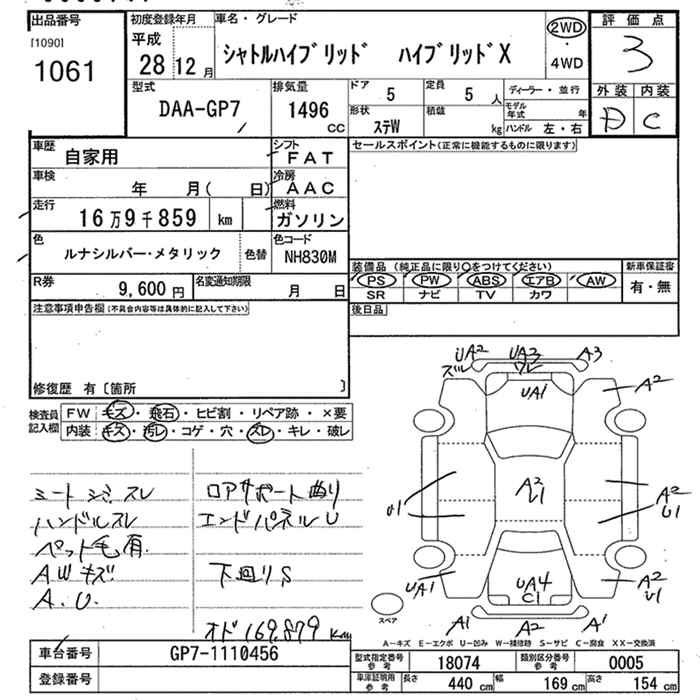 出品番号
[1090]
1061
初度登録年月
平成
28 12 月
車名・グレード
シャトルハイブリッド ハイブリッドX
2WD
・
4WD
評価点
3
外装 内装
D C
型式
DAA-GP7
排気量
1496
CC
ドア
5
定員
5 人
形状
ステW
積載
kg
ディーラー・並行
モデル年式 年
ハンドル 左・右
車歴
自家用
シフト
FAT
車検
年 月( 日)
冷房
AAC
走行
16万9千859 km
燃料
ガソリン
色
ルナシルバー・メタリック
色替
色コード
NH830M
R券
9,600 円
名変通知期限
月 日
セールスポイント(正常に機能するものに限ります)
装備品 (純正品に限り〇をつけてください)
PS PW ABS エアB AW
SR ナビ TV カワ
新車保証書
有・無
後日品
注意事項申告欄(不具合内容等は具体的に記入して下さい)
修復歴 有〔箇所 〕
検査員
記入欄
FW キズ・飛石・ヒビ割・リペア跡・×要
内装 キズ・汚レ・コゲ・穴・スレ・キレ・破レ
シートシミ.スレ
ハンドルスレ
ペット毛有.
AWキズ
A.U.
ロアサポート曲り
エンドパネルU
下回りS
オド169,879km
UA2
ズレ
UA3
ワレ
A3
UA1
A2
A2
U1
U1
A2
U1
UA1
UA4
C1
A2
U1
スペア
A1
A2
A1
A-キズ E-エクボ U-凹み W-補修跡 S-サビ C-腐食 XX-交換済
車台番号
GP7-1110456
登録番号
型式指定番号
参考
18074
類別区分番号
参考
0005
車庫証明用
参考
長さ
440 cm
幅
169 cm
高さ
154 cm